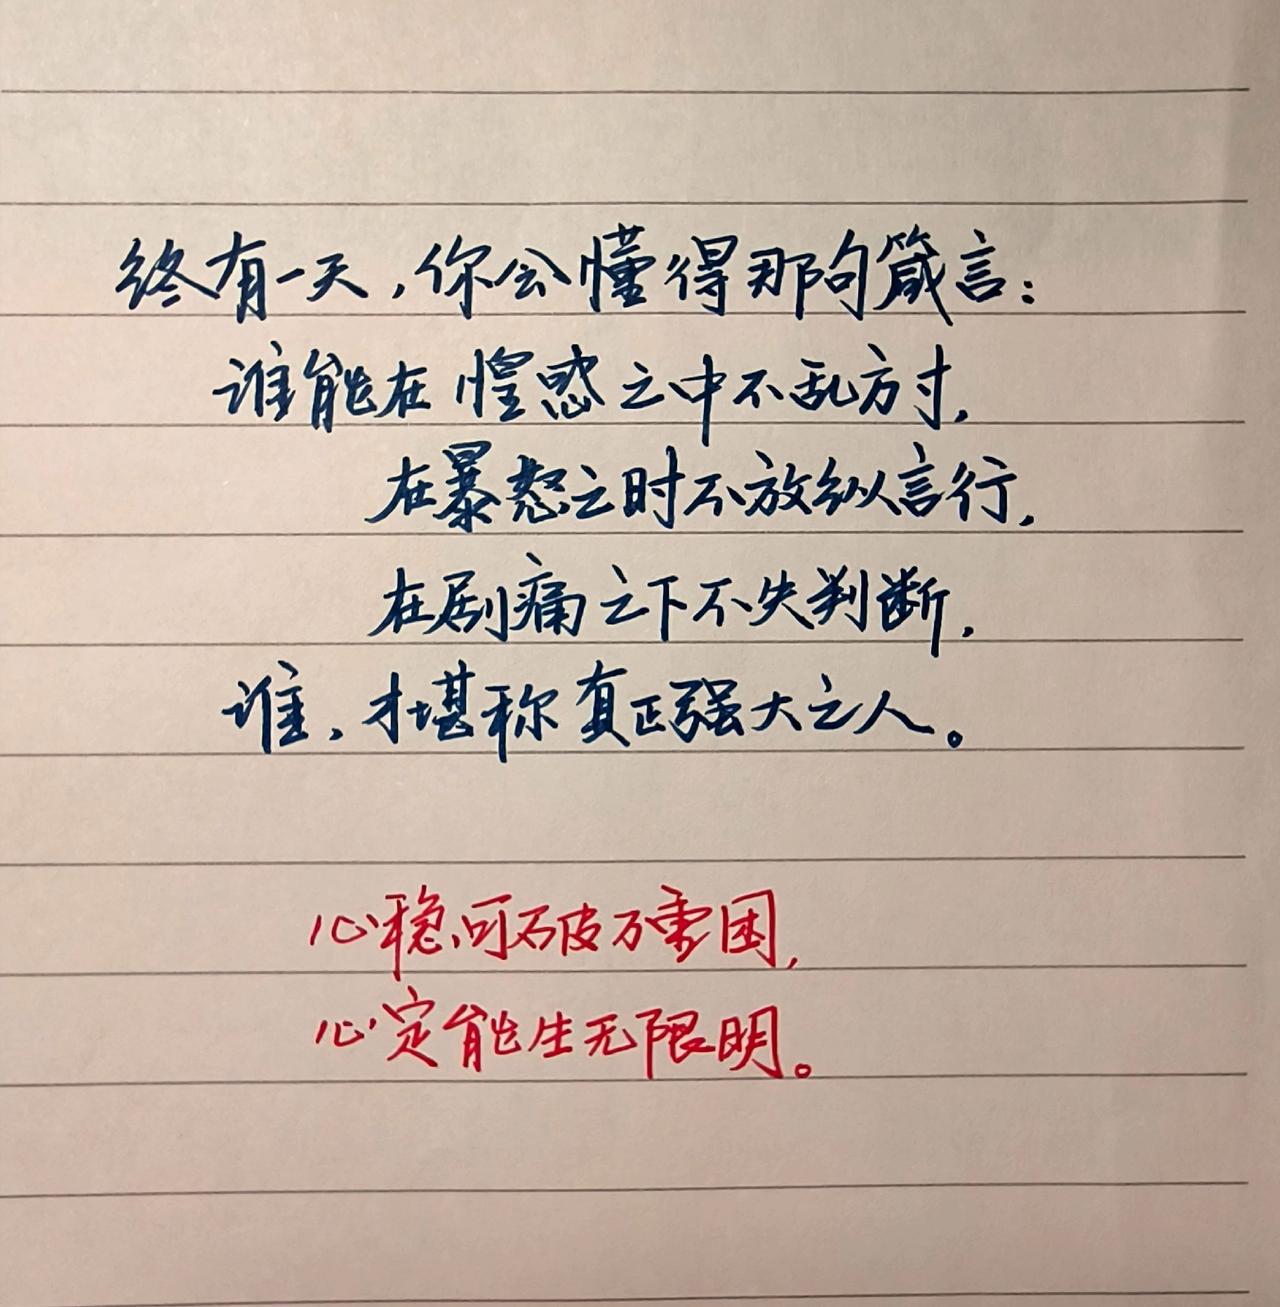 终有一天,你会懂得那句箴言:
谁能在惶惑之中不乱方寸,
在暴怒之时不放纵言行,
在剧痛之下不失判断,
谁,才堪称真正强大之人。
心稳可破万重困,
心定能生无限明。